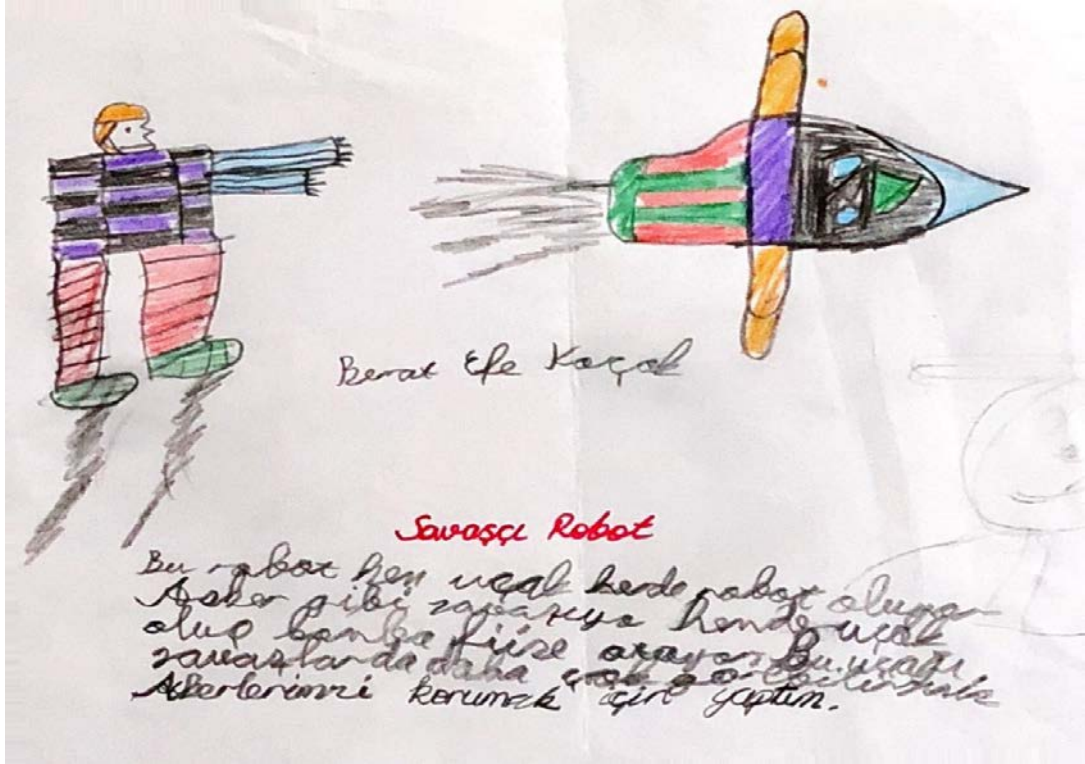 Berat Efe Koçak
Savaşçı Robot
Bu robot hem uçak hemde robot oluyor
Asker gibi savaşıyo hemde uçak
olup bomba füze atıyor Bu uçağı
savaşlarda daha çok
Askerlerimizi korumak için yaptım.